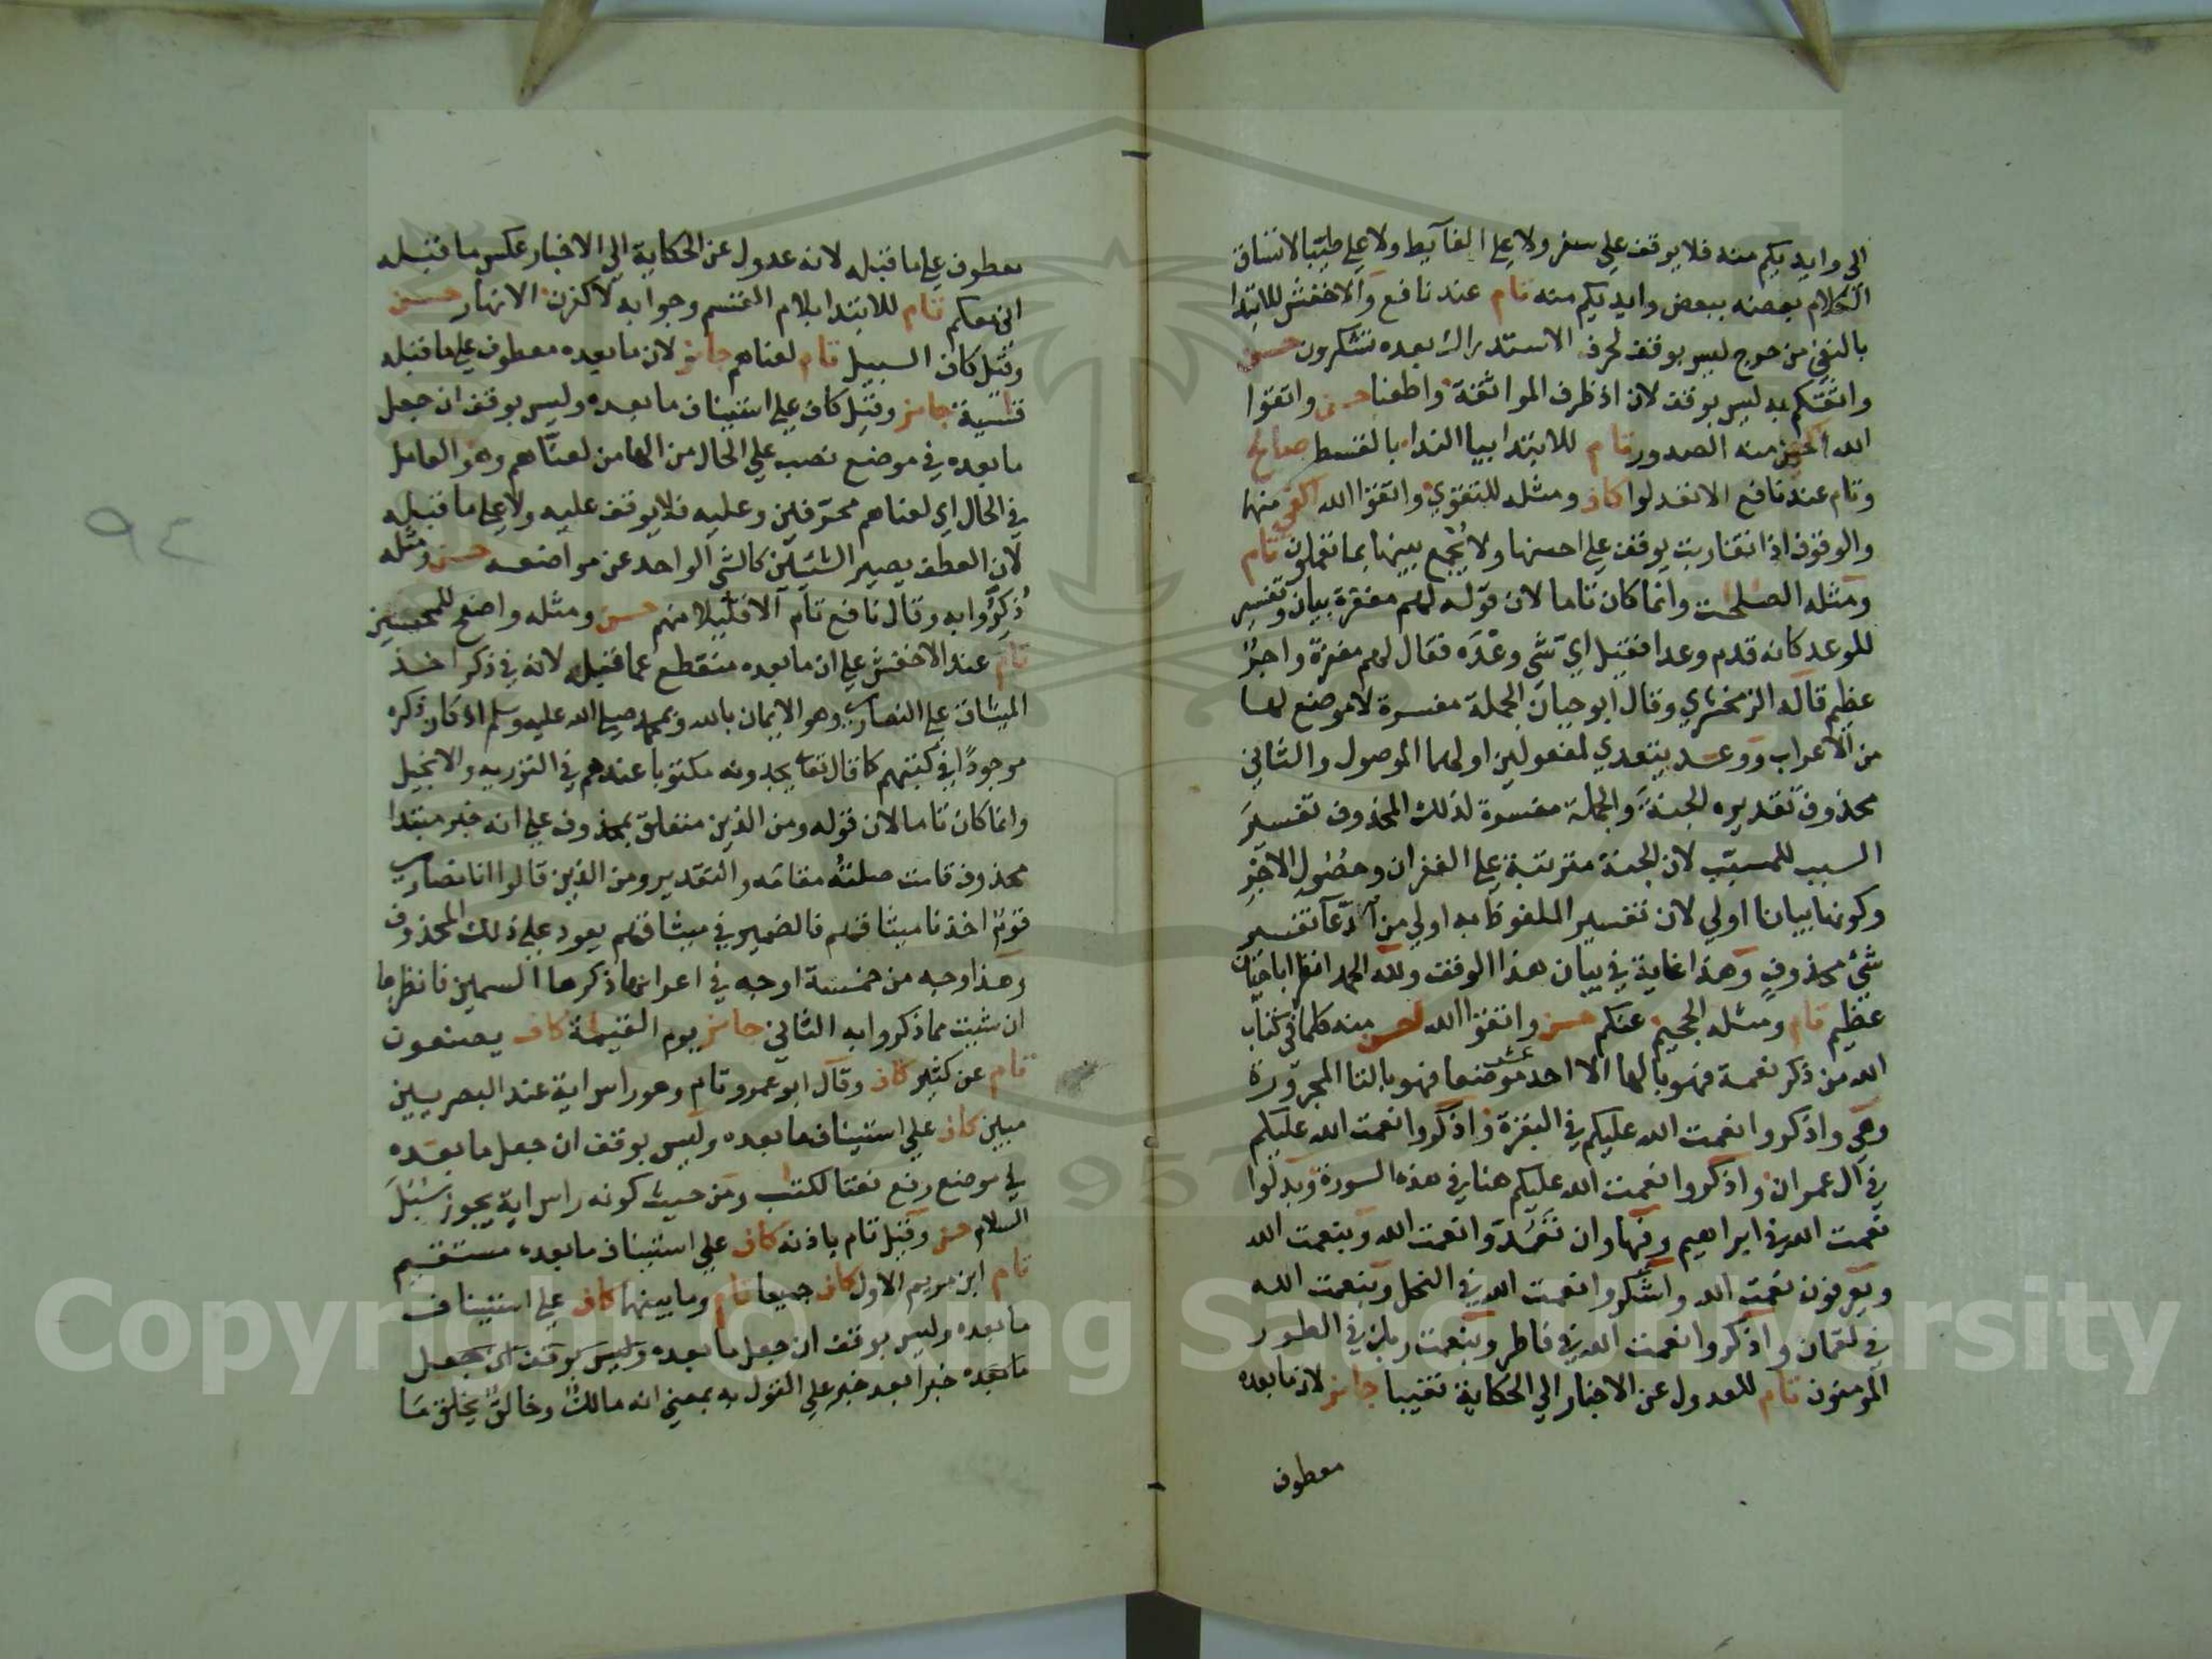 الى وايديكم منه فلا يوقف على سفر ولا على الغآيط ولا على طيبا لاتساق
الكلام بعضه ببعض وايديكم منه تام عند نافع والاخفش للابتدا
بالنفي من حرج ليس بوقف لحرف الاستدراك بعده تشكرون حسن
واثقكم به ليس بوقف لان اذ ظرف المواثقة واطعنا حسن واتقوا
الله احسن منه الصدور تام للابتدا بيا الندا بالقسط صالح
وتام عند نافع الا تعدلوا كاف ومثله للتقوي واتقوا الله اكفى منها
والوقوف اذا تقاربت يوقف على احسنها ولا يجمع بينها بما تعملون تام
ومثله الصلحت وانما كان تاما لان قوله لهم مغفرة بيان وتفسير
للوعد كانه قدم وعدا فقيل اي شي وعده فقال لهم مغفرة واجر
عظيم قاله الزمخشري وقال ابو حيان الجملة مفسرة لا موضع لها
من الاعراب ووعد يتعدي لمفعولين اولهما الموصول والثاني
محذوف تقديره الجنة والجملة مفسرة لذلك المحذوف تفسير
السبب للمسبب لان الجنة مترتبة على الغفران وحصول الاجر
وكونها بيانا اولي لان تفسير الملفوظ به اولي من ادعآ تفسير
شئ محذوف وهذا غاية في بيان هذا الوقف ولله الحمد
عظيم تام ومثله الجحيم عنكم حسن واتقوا الله احسن منه كلما في كتاب
الله من ذكر نعمة فهو بالها الا احد عشر موضعا فهو بالتا المجرورة
وهي واذكروا نعمت الله عليكم في البقرة واذكروا نعمت الله عليكم
في آل عمران واذكروا نعمت الله عليكم هنا في هذه السورة وبدلوا
نعمت الله في ابراهيم وفيها وان تعدوا نعمت الله وبنعمت الله
ويعرفون نعمت الله واشكروا نعمت الله في النحل وبنعمت الله
في لقمان واذكروا نعمت الله في فاطر وبنعمت ربك في الطور
المومنون تام للعدول عن الاخبار الي الحكاية نقيبا جائز لان ما بعده
معطوف
معطوف على ما قبله لانه عدول عن الحكاية الي الاخبار عكس ما قبله
اني معكم تام للابتدا بلام القسم وجوابه لاكفرن الانهار حسن
وقيل كاف السبيل تام لعناهم جائز لان ما بعده معطوف على ما قبله
قاسية جائز وقيل كاف علي استيناف ما بعده وليس بوقف ان جعل
ما بعده في موضع نصب علي الحال من الها من لعناهم وهو العامل
في الحال اي لعناهم محرفين وعليه فلا يوقف عليه ولا على ما قبله
لان العطف يصير الشيئين كالشي الواحد عن مواضعه حسن ومثله
ذكروا به وقال نافع تام الا قليلا منهم حسن ومثله واصفح المحسنين
تام عند الاخفش على ان ما بعده منقطع عما قبله لانه في ذكر اخذ
الميثاق على النصارى وهو الايمان بالله وبمحمد صلى الله عليه وسلم اذ كان ذكره
موجودا في كتبهم كما قال تعا يجدونه مكتوبا عندهم في التورية والانجيل
وانما كان تاما لان قوله ومن الذين متعلق بمحذوف على انه خبر مبتدا
محذوف قامت صلته مقامه والتقدير ومن الذين قالوا انا نصارى
قوم اخذنا ميثاقهم فالضمير في ميثاقهم يعود على ذلك المحذوف
وهذا وجه من خمسة اوجه في اعرابها ذكرها السمين فانظرها
ان شيت مما ذكروا به الثاني جائز يوم القيمة كاف يصنعون
تام عن كثير كاف وقال ابو عمرو تام وهو راس اية عند البصريين
مبين كاف علي استيناف ما بعده وليس بوقف ان جعل ما بعده
في موضع رفع نعتا لكتب ومن حيث كونه راس اية يجوز سبل
السلام حسن وقيل تام باذنه كاف علي استيناف ما بعده مستقيم
تام ابن مريم الاول كاف جميعا تام وما بينهما كاف على استيناف
ما بعده وليس بوقف ان جعل ما بعده وليس بوقف ان جعل
ما بعده خبرا بعد خبر على القول به بمعني انه مالك وخالق يخلق ما
٩٤
Copyright © King Saud University
1957